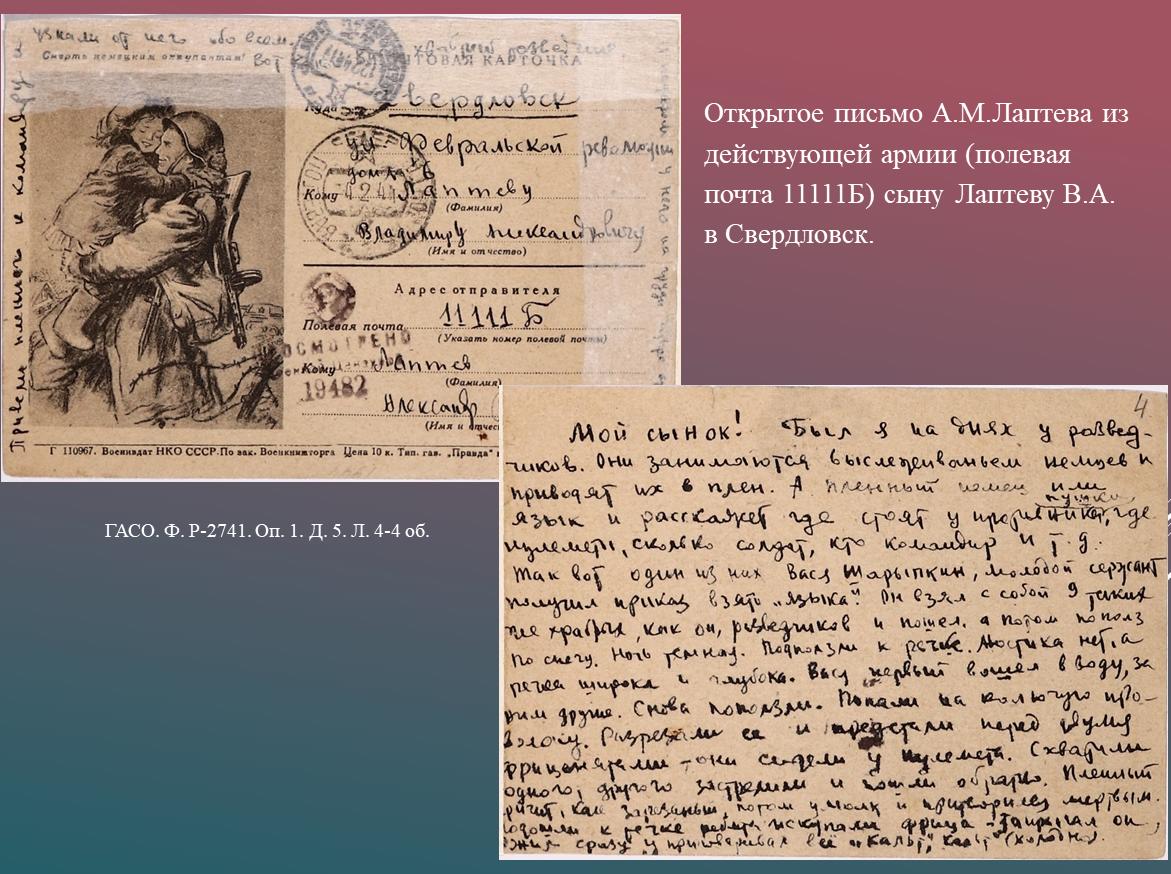 узнали от него обо всем.
Смерть немецким оккупантам! Вот храбрый разведчик
ПОЧТОВАЯ КАРТОЧКА
Куда Свердловск
ул Февральской революции
дом
Кому Лаптеву
(Фамилия)
Владимиру Александровичу
(Имя и отчество)
Адрес отправителя
Полевая почта 11111 Б
(Указать номер полевой почты)
ОСМОТРЕНО
Кому Лаптев
(Фамилия)
19482
Александр
Г 110967. Воениздат НКО СССР. По зак. Военкнижторга Цена 10 к. Тип. газ. „Правда"
Привели пленного к командиру и
Открытое письмо А.М.Лаптева из
действующей армии (полевая
почта 11111Б) сыну Лаптеву В.А.
в Свердловск.
4
Мой сынок! Был я на днях у развед-
чиков. Они занимаются выслеживаньем немцев и
приводят их в плен. А пленный немец или
пушки,
язык и расскажет где стоят у противника, где
пулеметы, сколько солдат, кто командир и т.д.
Так вот один из них Вася Шарыпкин, молодой сержант
получил приказ взять „языка". Он взял с собой 9 таких
же храбрых, как он, разведчиков и пошел, а потом пополз
по снегу. Ночь темная. Подползли к речке. Мостика нет, а
речка широка и глубока. Вася первый вошел в воду, за
ним другие. Снова поползли. Попали на колючую про-
волоку. Разрезали ее и предстали перед двумя
фрицами они сидели у пулемета. Схватили
одного, другого застрелили и пошли обратно. Пленный
кричит, как зарезаный, потом умолк и притворился мертвым.
Подошли к речке ребята искупали фрица он
ожил сразу и приговаривал всё „кальт", кальт (холодно).
ГАСО. Ф. Р-2741. Оп. 1. Д. 5. Л. 4-4 об.